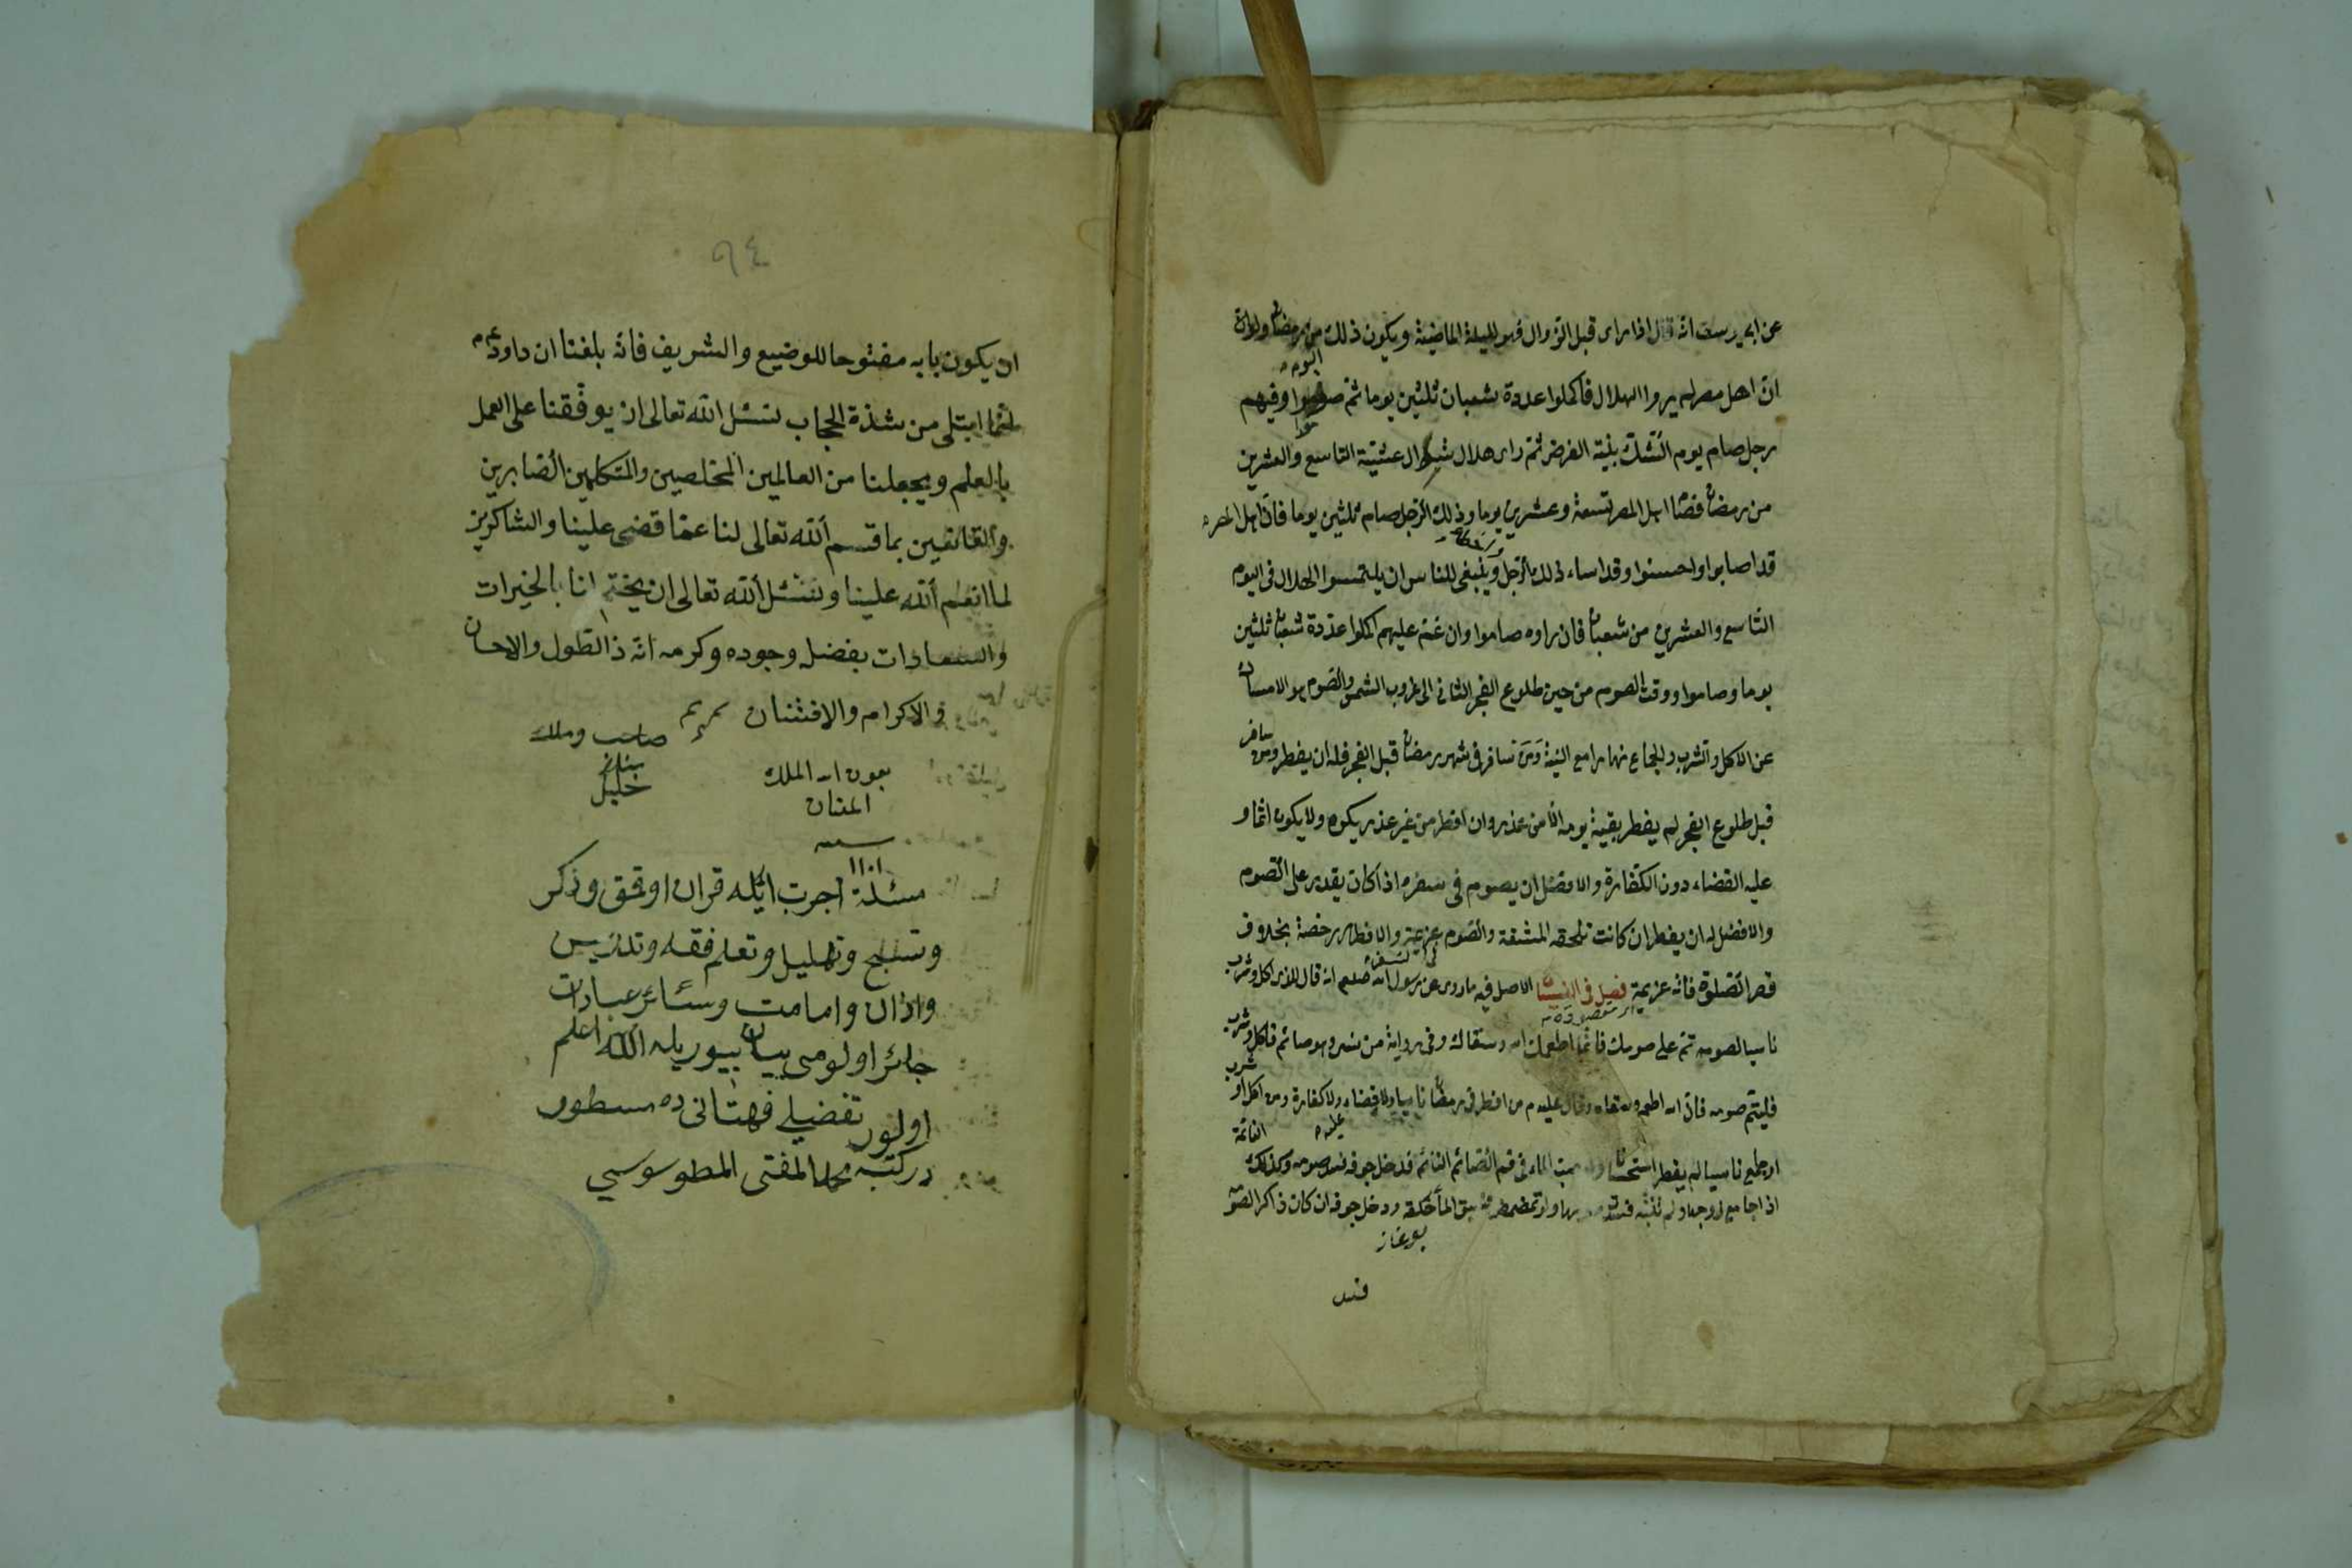 عن ابى يوسف انه قال اذا رای قبل الزوال فهو لليلة الماضية ويكون ذلك من رمضان ولو ان
اليوم
انّ اهل مصر لم يروا الهلال فاكملوا عدة شعبان ثلثين يوما ثم صاموا وفيهم
رجل صام يوم الشّك بنيّة الفرض ثمّ رای هلال شوال عشيّة التاسع والعشرين
من رمضان فصام اهل المصر تسعة وعشرين يوما وذلك الرّجل صام ثلثين يوما فانّ اهل المصر
قد اصابوا واحسنوا وقد اساء ذلك الرّجل وينبغى للناس ان يلتمسوا الهلال فى اليوم
التّاسع والعشرين من شعبان فان راوه صاموا وان غمّ عليهم اكملوا عدّدة شعبان ثلثين
يوما وصاموا ووقت الصوم من حين طلوع الفجر الثانى الى غروب الشمس والصّوم هو الامساك
عن الاكل والشرب والجماع نهارا مع النيّة ومن سافر فى شهر رمضان قبل الفجر فله ان يفطر ومن سافر
قبل طلوع الفجر لم يفطر بقيّة يومه الّا من عذر وان افطر من غير عذر يكره ولا يكون اثما و
عليه القضاء دون الكفارة والافضل ان يصوم فى سفره اذا كان يقدر على الصّوم
والافضل له ان يفطر ان كانت تلحقه المشقة والصّوم عزيمة والافطار رخصة بخلاف
قصر الصّلوة فانّه عزيمة فصل فى النسيان الاصل فيه ما روى عن رسول الله صلعم انه قال للذى اكل وشرب
ناسيا لصومه تمّ على صومك فانّما اطعمك الله وسقاك وفى رواية من نسى وهو صائم فاكل وشرب
فليتمّ صومه فانّ الله اطعمه وسقاه وقال عليه م من افطر فى رمضان ناسيا ولا قضاء عليه ولا كفارة ومن اكل او شرب
او جامع ناسيا لم يفطر استحسانا صب الماء فى فم الصّائم النائم فدخل جوفه فسد صومه وكذلك النائمة
اذا جامع زوجها ولم تنتبه فسد صومها ولو تمضمض فسبق الماء حلقه ودخل جوفه ان كان ذاكرا لصومه
فسد
٩٤
ان يكون بابه مفتوحا للوضيع والشريف فانّه بلغنا ان داود عم
انّما ابتلى من شدّة الحجاب نسئل الله تعالى ان يوفّقنا على العمل
بالعلم ويجعلنا من العالمين المخلصين والمتكلمين الصّابرين
والقانعين بما قسم الله تعالى لنا عمّا قضى علينا والشاكرين
لما انعم الله علينا ونسئل الله تعالى ان يختم لنا بالخيرات
والسعادات بفضله وجوده وكرمه انّه ذا لطول والاحسان
والاكرام والامتنان تم تم
صاحب وملك
بعون الله الملك
المنان
خليل
سنه
مسئلة اجرت ايله قران اوقمق وذكر
وتسبيح وتهليل وتعلم فقه وتدريس
واذان وامامت وسائر عبادات
جائز اولورمى بيان بيوريله الله اعلم
اولنور تفضيلى قهستانى ده مسطور
در كتبه محمد المفتى المطوسوسي